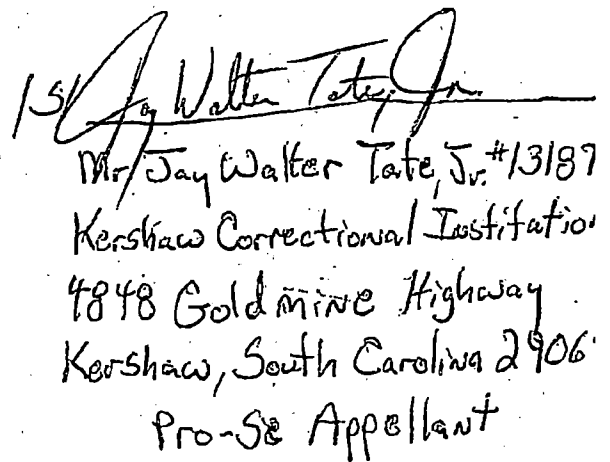 /S/ Jay Walter Tate, Jr.
Mr. Jay Walter Tate, Jr. #13187
Kershaw Correctional Institutio
4848 Goldmine Highway
Kershaw, South Carolina 2906
Pro-Se Appellant